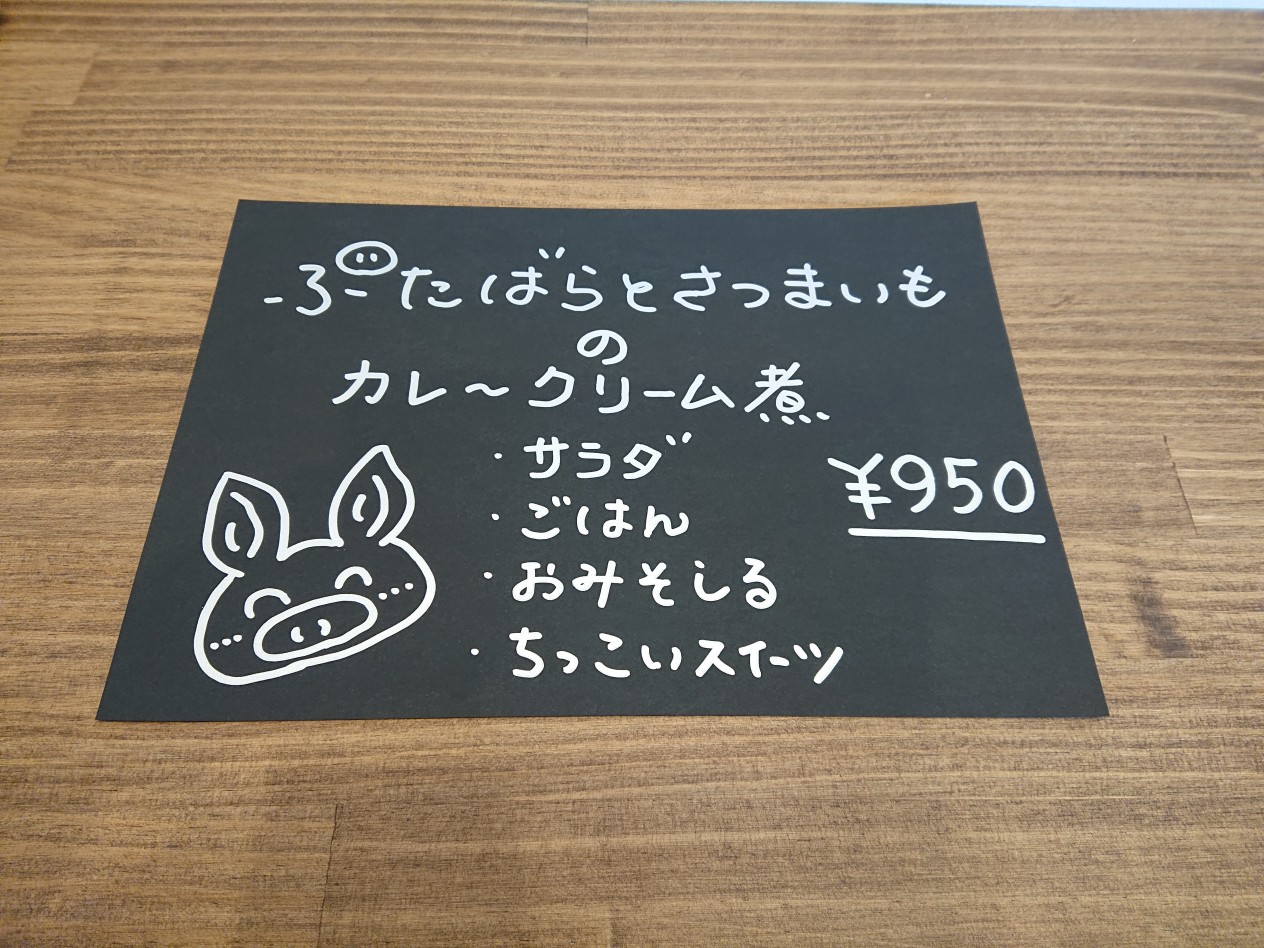 ぶたばらとさつまいも
の
カレ～クリーム煮
・サラダ
・ごはん
・おみそしる
・ちっこいスイーツ
¥950